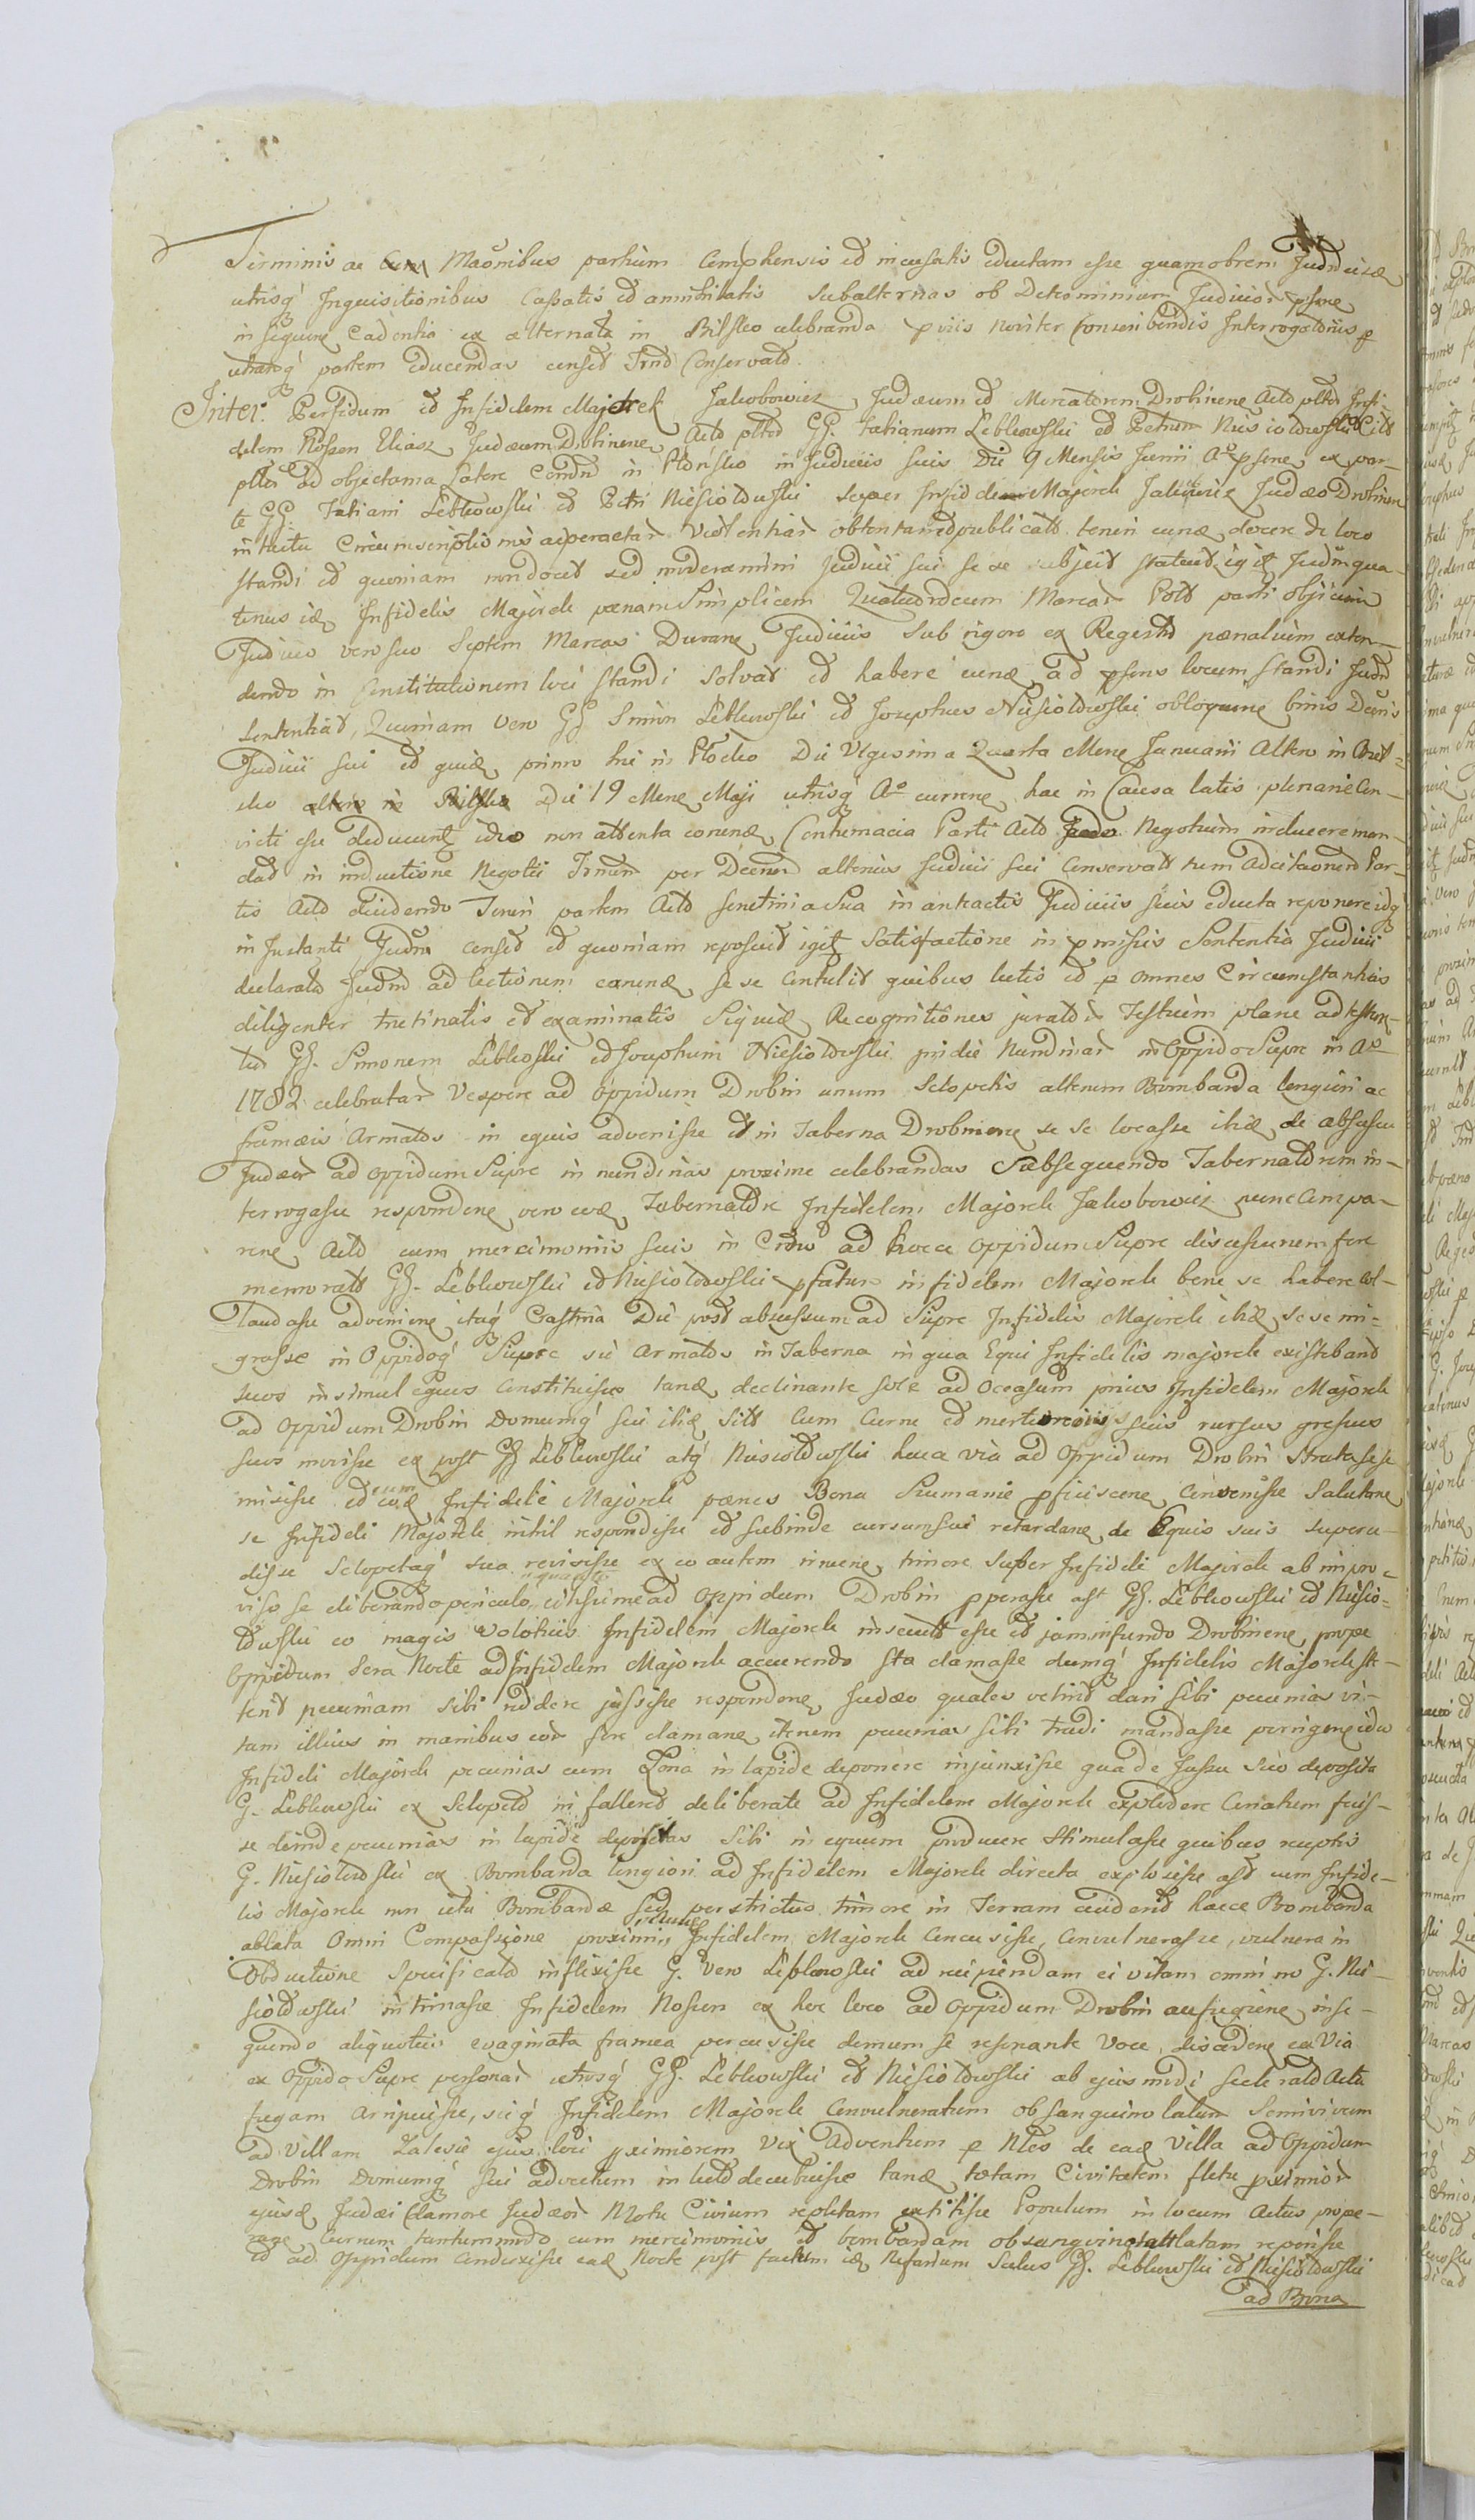 Terminis ac Maonibus partium Comphensis et incusatis eductam esse quamobrem Judm eisd
utrisq Inquisitionibus Cassatis et annihilatis Subalternas ob Determinium Judicior psens
in sequens Cadentia ex alternata in Bilsko celebranda pviis noviter Conscribendis Interrogatoriis p
utramq partem educendas censet Trnd Conservato
Inter. Perfidum et Infidelem Majorek Jakobowicz Judaeum et Mercatorem Drobinens Acto pltd Infi-
delem Nossen Eliasz Judaeum Drobinens Acto pltd GG. Fabianum Lebkowski et Petrum Niesioldowski Citt
pltes ad objectama Latere Comdnd in Plonsko in Judiciis suis Die 9 Mensis Junii Ao psens ex par-
te GG. Fabiani Lebkowski et Petri Niesioldwski super Infidelem Majorek Judaeo Drobinens
intuitu Circumscriptionis aiperactar Violentiar obtentam et publicatt teneri eunq docere de loco
standi et quoniam non docuit sed moderamini Judicii sui se se subjecit statuit igit Judm qua-
tenus id Infidelis Majorek paenam Simplicem Quatuordecim Marcar Polt parti objicien
Judicio vero suo Septem Marcas Durane Judiciis sub rigore ex Regestro paenaluim exten-
dendo in Constitutionem loci standi Solvat et habere eunq ad psens locum standi Judm
Sententiat, Quoniam vero GG Simon Lebkowski et Josephus Niesioldowski obloquine binis Decris
Judicii sui et quid primo hic in Plocko Die Vigesima Quarta Mens Januarii Altero in
sko Die 19 Mens Maji utrisq Ao currens hac in Causa latis plenarie Con-
victi esse deducunt ideo non attenta eorunq Contumacia Parti Acto Negotium inducere man-
dat in inductione Negotii Trmnm per Decrum alterius Judicii sui Conservatt tum adcitaonem Par-
tis Acto decidendo Teneri partem Acto Scrutinia sua in antactis Judiciis suis educta reponere idq
in Instanti Judm censet et quoniam reposuit igit Satisfactione in pmissis Sententia Judicii
declarata Judm ad lectionem eorunq se se Contulit quibus lectis et p omnes Circumstantias
diligenter trutinatis et examinatis Siquid Recognitiones juratos Testium plane ad testan-
tur GG. Simonem Lebkoski et Josephum Niesioldwski pridie Nundinar in Oppido Siepre in Ao
1782 celebratar Vespere ad oppidum Drobin unum Sclopetis alterum Bombarda longiori ac
frameis Armatos in equis advenisse et in Taberna Drobinens se se locasse ibiq de absessu
Judaeor ad oppidum Siepre in nundinas proxime celebrandas Subsequendo Tabernatorem in-
terrogasse respondens vero eod Tabernatore Infidelem Majorek Jakobowicz nunc Compa-
rens Acto cum mercimoniis suis in Curru ad hocce oppidum Siepre discessurum fore
memoratt GG. Lebkowski et Niesioldowski pfatum infidelem Majorek bene se habere col-
laudasse adveniens itaq Crastina Die post abscessum ad Siepre Infidelis Majorek ibiq se se mi-
grasse in Oppidoq Siepre sic Armatos in Taberna in qua Equi Infidelis majorek existebant
suos insimul equos Constituisse tanq declinante sole ad Occasum prius Infidelem Majorek
ad oppidum Drobin Domumq sui ibiq Sitt Cum Curru et mercimoniis suis rursus gressus
suos movisse ex post GG Lebkowski atq Niesioldwski hacce via ad Oppidum Drobin Strata se se
misisse et cum eod Infideli Majorek paenes Bona Szumanie pficiscens Convenisse Salutans
se Infideli Majorek nihil respondisse et subinde cursum sui retardans de Equis suis supersu-
disse Sclopetaq sua revisisse ex eo autem irruens timore super Infideli Majorek ab impro-
viso se eliberando periculo citissime ad Oppidum Drobin pperasse ast GG. Lebkowski et Niesio-
ldwski eo magis velotius Infidelem Majorek insecutt esse et jam in fundo Drobinens prope
Oppidum Sera Nocte ad Infidelem Majorek accurrendo sta clamasse dumq Infidelis Majorek ste-
terit pecuniam sibi reddere jussisse respondens Judaeo quales vetint dari sibi pecunias vi-
tam illius in manibus eor fore clamans iterum pecunias sibi tradi mandasse perrigens ideo
Infideli Majorek pecunias cum Zona in lapide deponere injunxisse qua de Jussu suo deposita
G. Lebkowski ex Sclopeto in falleret deliberate ad Infidelem Majorek explodere Conatum fuis-
se deinde pecunias in lapide depositas Sibi in equum producere Stimulasse quibus receptis
G. Niesioldwski ex Bombarda longiori ad Infidelem Majorek directa explosisse ast cum Infide-
lis Majorek non ictu Bombardae sed perstrictus timore in Terram ceciderit haece Bombarda
ablata Omni Compassione proximi Infidelem Majorek Concusisse, Convulnerasse, vulnera in
Obductione specificata inflixisse G. vero Lebkowski ad recipiendam ei vitam omnino G. Nie-
sioldwski intimasse Infidelem Nossen ex hoc loco ad Oppidum Drobin aufugiens inse-
quendo aliquoties evaginata framea percusisse demum se resonante voce discedens ex Via
ex Oppido Siepre personar utrosq GG. Lebkowski et Niesioldwski ab ejusmodi scelerato Actu
fugam arripuisse, sicq Infidelem Majorek Convulneratum ob sanguinolatum Semivivum
ad Villam Zalesie ejus loci pximiorem Vix Adventum p Ntes de ead Villa ad Oppidum
Drobin Domumq sui advectum in lecto decubuisse tanq totam Civitatem fletu pximior
ejusd Judaei Clamore Judaeor Motu Civium repletam extitisse Populum in locum Actus prope-
rare Currum tantummodo cum mercimoniis et bombardam obsanguinolatam reperisse
et ad oppidum Conduxisse ead Nocte post factum id Nefarium Scelus GG. Lebkowski et Niesioldwski
ad Bona